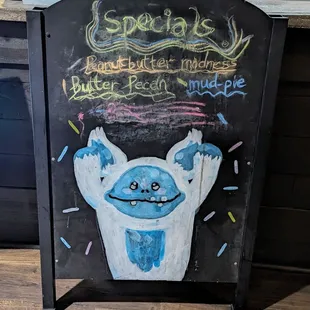 Specials
Peanutbutter madness
Butter Pecan mud-pie